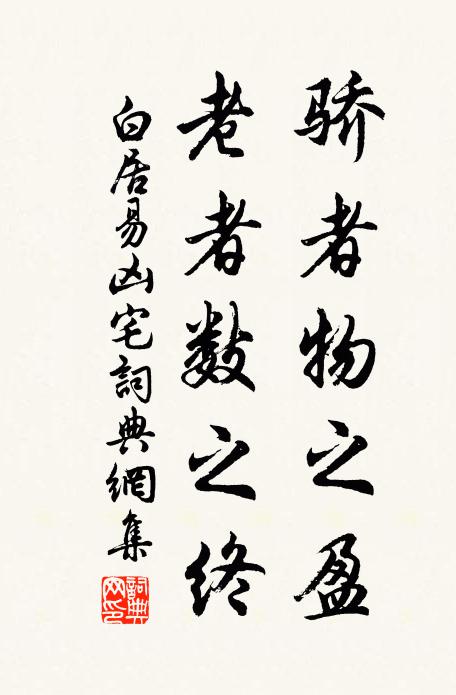 骄者物之盈
老者数之终
白居易凶宅詞典網集
詞典网印